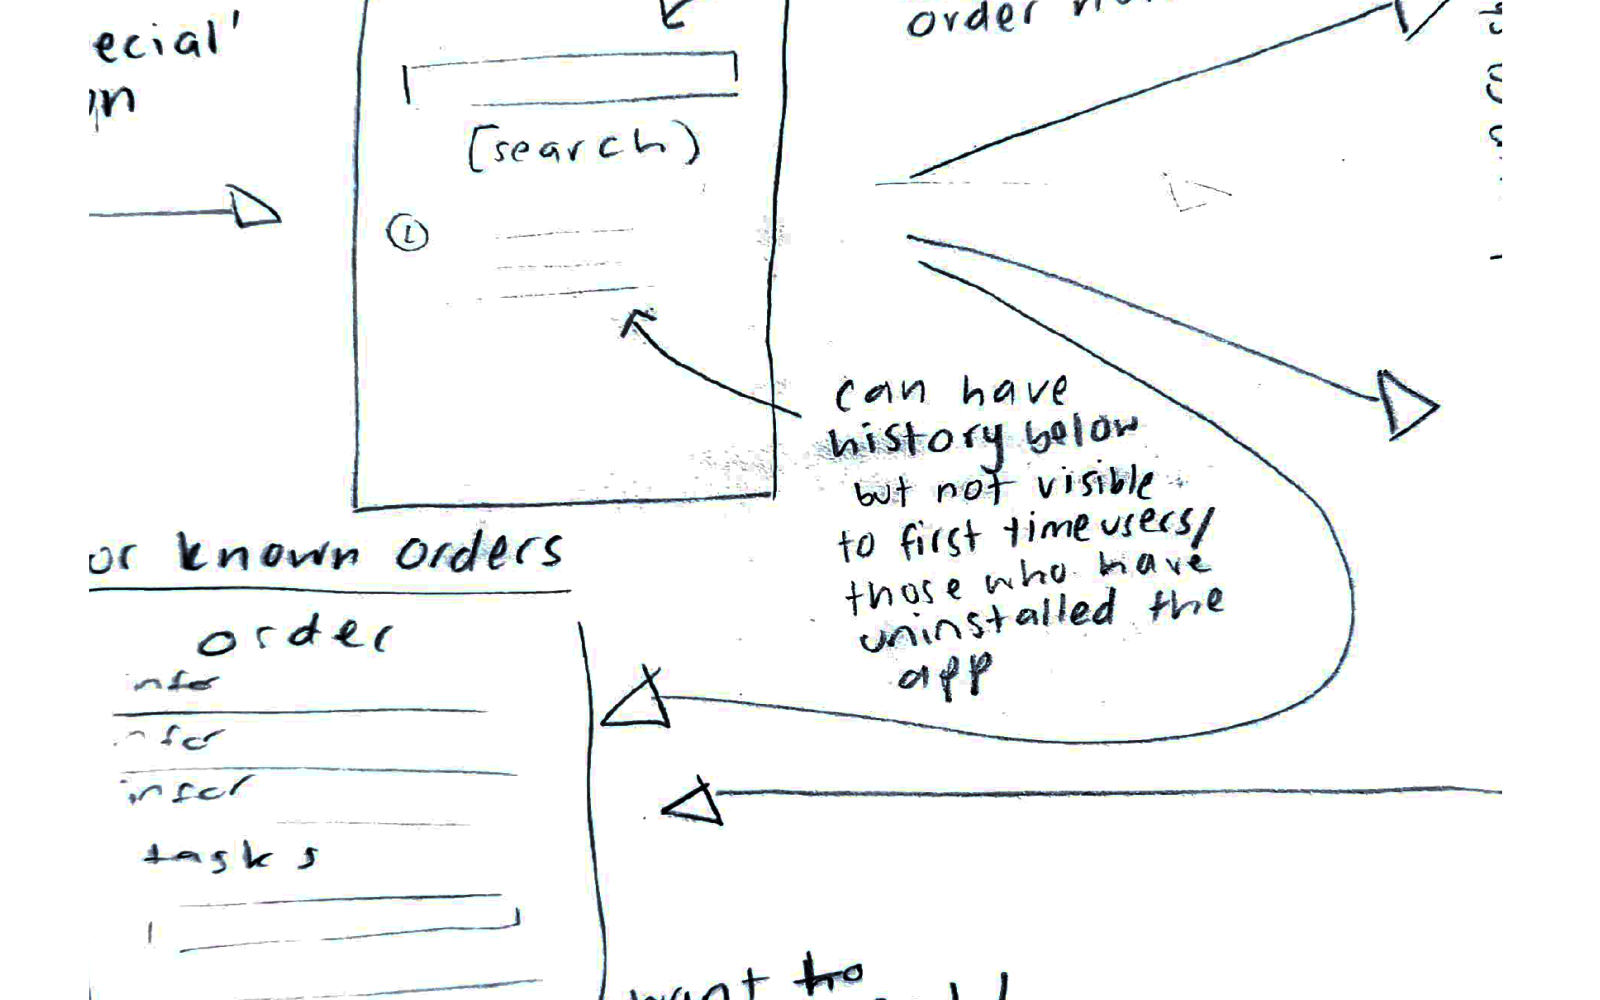 ecial'
order
(search)
can have
history below
but not visible
to first time users/
those who have
uninstalled the
app
or known orders
order
infor
tasks
want to